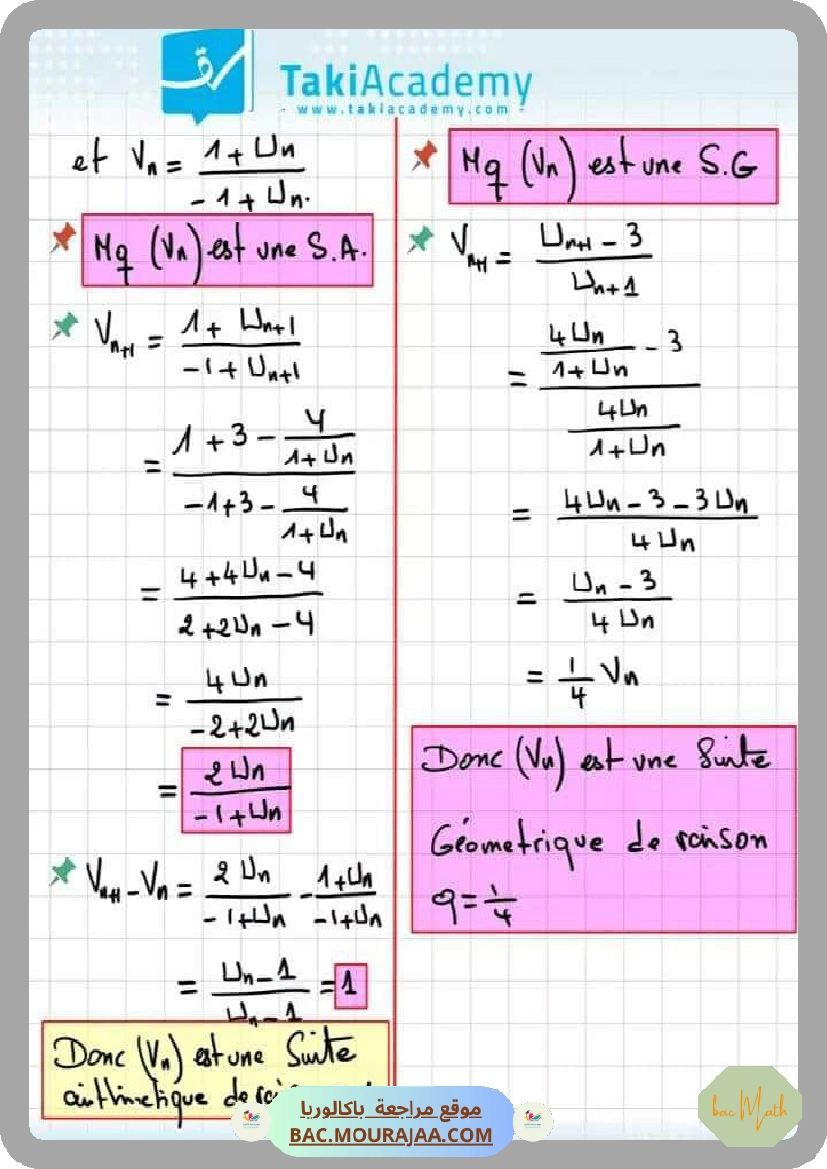 TakiAcademy
- www.takiacademy.com -
et Vn = (1 + Un) / (-1 + Un).
Mq (Vn) est une S.A.
Vn+1 = (1 + Un+1) / (-1 + Un+1)
= (1 + 3 - 4/(1+Un)) / (-1+3 - 4/(1+Un))
= (4+4Un-4) / (2+2Un-4)
= 4Un / (-2+2Un)
= 2Un / (-1+Un)
Vn+1 - Vn = 2Un / (-1+Un) - (1+Un) / (-1+Un)
= (Un-1) / (Un-1) = 1
Donc (Vn) est une Suite
arithmetique de
Mq (Vn) est une S.G
Vn+1 = (Un+1 - 3) / Un+1
= (4Un/(1+Un) - 3) / (4Un/(1+Un))
= (4Un - 3 - 3Un) / 4Un
= (Un - 3) / 4Un
= 1/4 Vn
Donc (Vn) est une Suite
Géometrique de raison
q = 1/4
موقع مراجعة باكالوريا
BAC.MOURAJAA.COM
bac Math